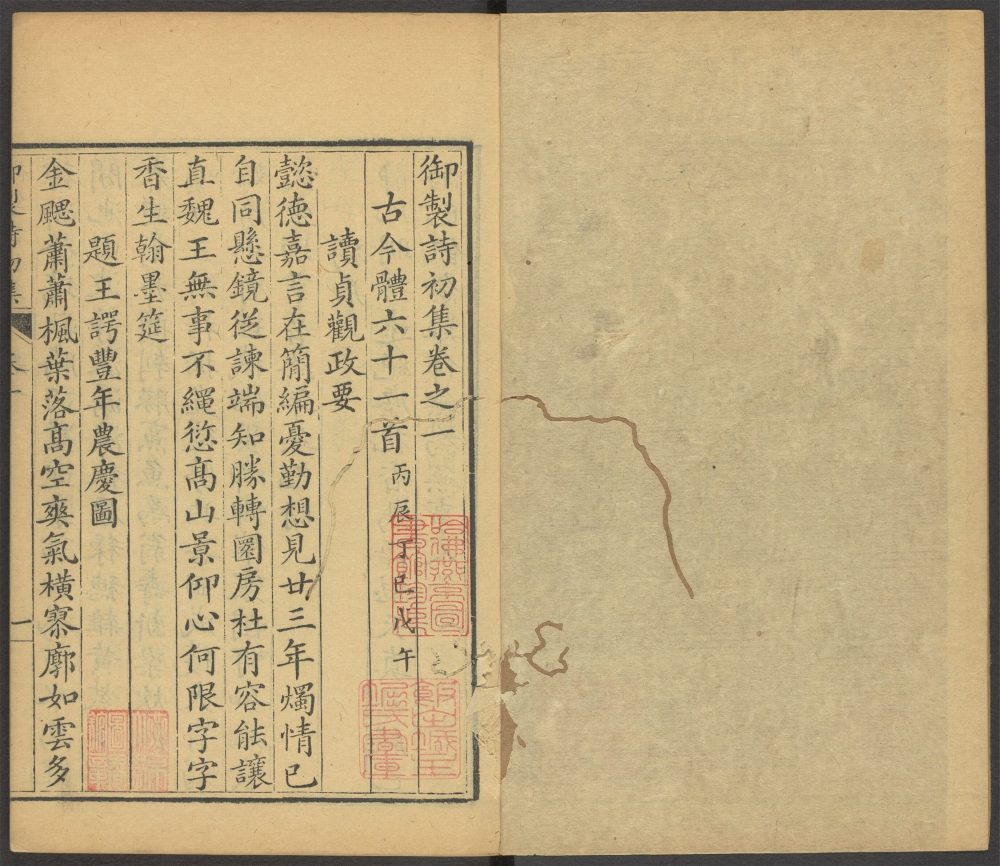 御製詩初集卷之一
古今體六十一首 丙辰 丁巳 戊午
讀貞觀政要
懿德嘉言在簡編憂勤想見廿三年燭情已
自同懸鏡從諫端知勝轉圜房杜有容能讓
直魏王無事不繩愆高山景仰心何限字字
香生翰墨筵
題王諤豐年農慶圖
金颸蕭蕭楓葉落高空爽氣橫寥廓如雲多
御製詩初集 卷一 一